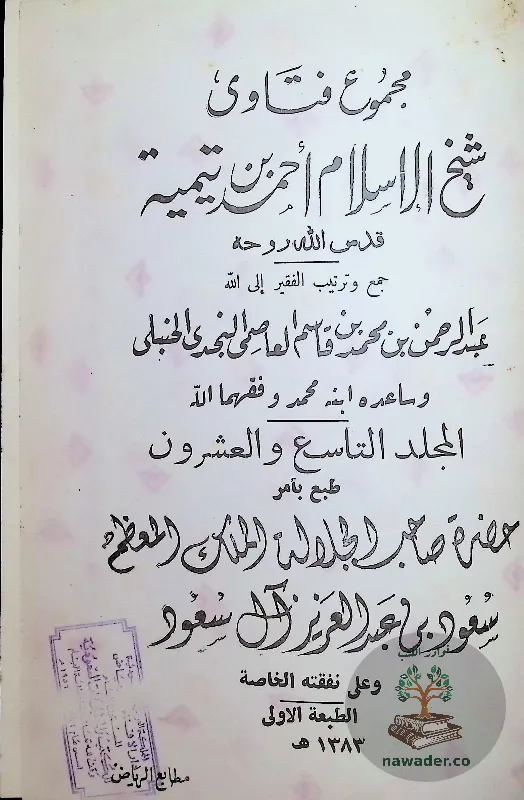 مجموع فتاوى
شيخ الإسلام أحمد بن تيمية
قدس الله روحه
جمع وترتيب الفقير إلى الله
عبد الرحمن بن محمد بن قاسم العاصمي النجدي الحنبلي
وساعده ابنه محمد وفقهما الله
المجلد التاسع والعشرون
طبع بأمر
حضرة صاحب الجلالة الملك المعظم
سعود بن عبد العزيز آل سعود
وعلى نفقته الخاصة
الطبعة الأولى
١٣٨٣ هـ
مطابع الرياض
نوادر الكتب
nawader.co